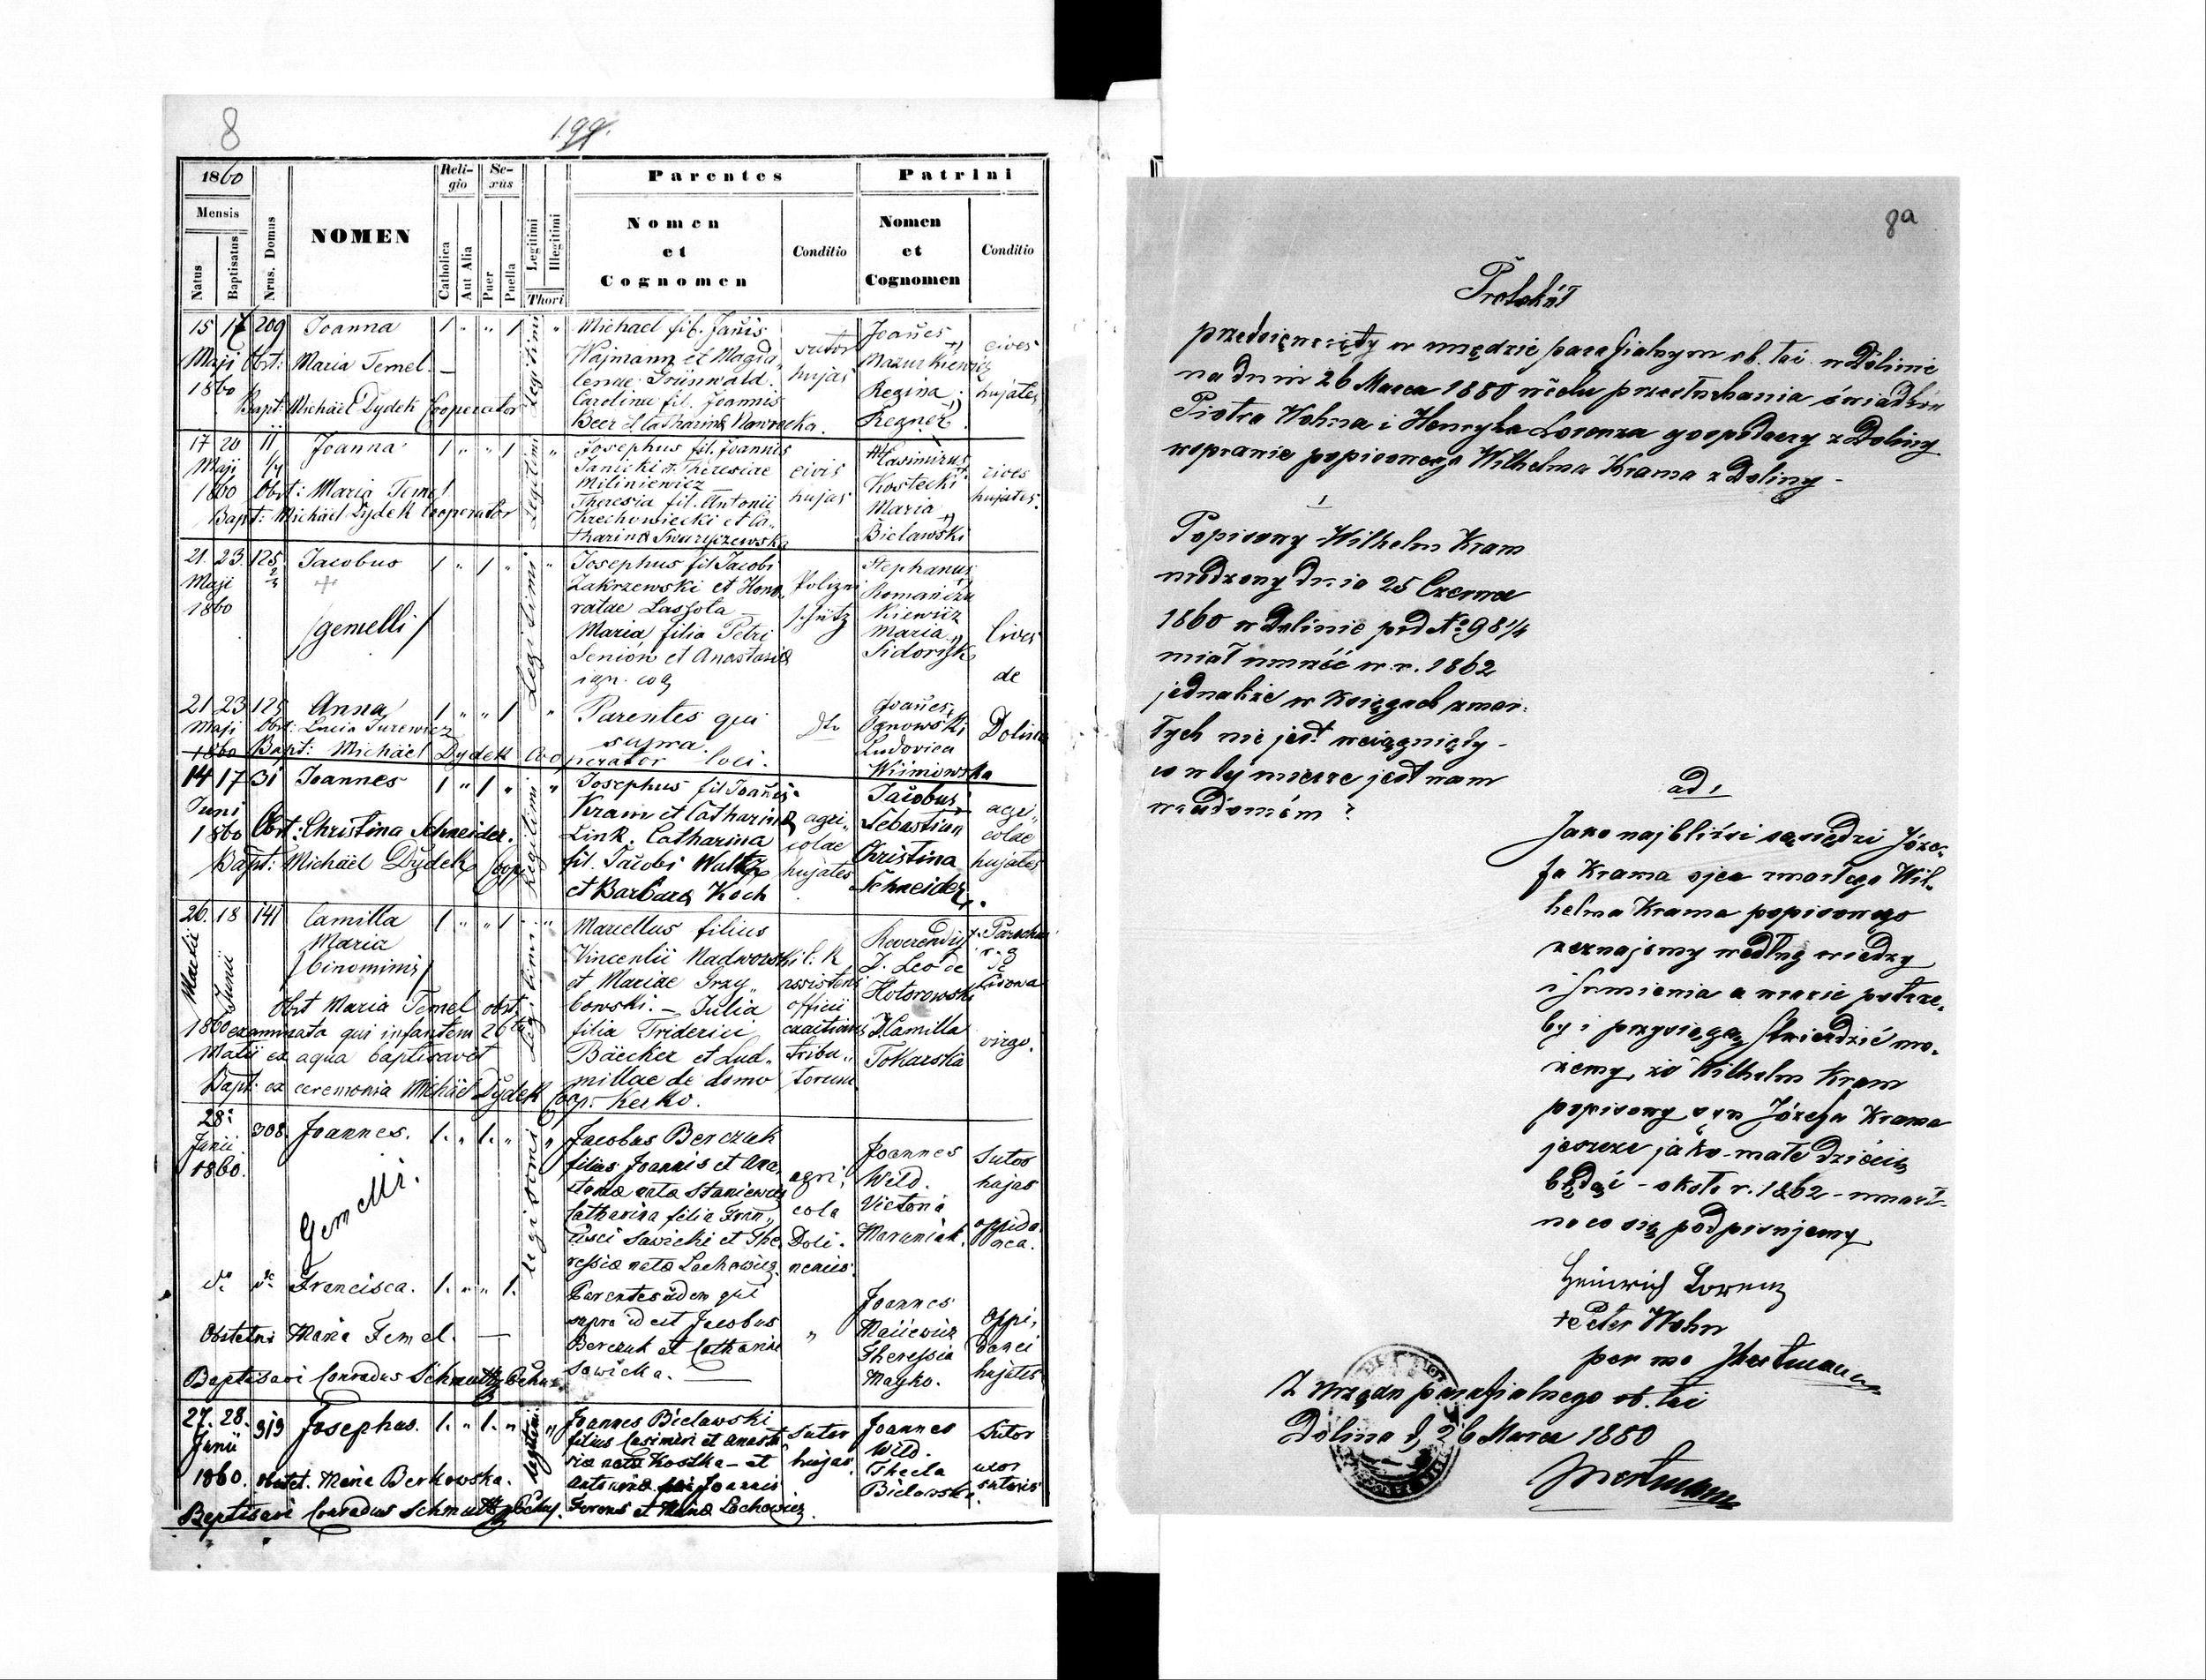 8
199.
1860
Mensis
Natus
Baptisatus
Nrus. Domus
NOMEN
Reli-
gio
Catholica
Aut Alia
Se-
xus
Puer
Puella
Legitimi
Illegitimi
Thori
Parentes
Nomen
et
Cognomen
Conditio
Patrini
Nomen
et
Cognomen
Conditio
15 17 209 Joanna 1 " " 1 "
Maji Obst: Maria Temel. —
1860
Bapt: Michäel Dydek Cooperator
legitimi
Michael fil. Joañis
Wajmann et Magda„
lenae Grünwald.
Carolina fil. Joannis
Beer et Catharina Nawrocka.
sutor
hujas
Joañes
Mazurkiewicz
Regina
Regner
cives
hujates
17 20 11 Joanna 1 " " 1 "
Maji 1/4
1860 Obst: Maria Temel
Bapt: Michäel Dydek Cooperator
legitimi
Josephus fil. Joannis
Janicki et Theresiae
Miliniewicz
Theresia fil. Antonii
Krechowiecki et Ca„
tharina
civis
hujas
Casimirus
Kostecki
Maria
Bielawski
cives
hujates.
21. 23. 125 Jacobus 1 " 1 " "
Maji +
1860
/gemelli/
legitimi
Josephus fil Jacobi
Zakrzewski et Hono„
ratae Lassota
Maria filia Petri
Senion et Anastasia
ign. cog
Stephanus
Maria
Cives
de
21 23 125 Anna 1 " " 1 "
Maji Obst: Lucia Jurewicz
1860 Bapt: Michäel Dydek Cooperator loci.
Parentes qui
supra.
Joañes
Ludovica
Dolina
14 17 31 Joannes 1 " 1 " "
Juni
1860 Obst: Christina Schneider.
Bapt: Michäel Dydek Coop
legitimi
Josephus fil Joañis
Kram et Catharina
Link. Catharina
fil Jacobi
et Barbara Koch
agri„
colae
hujates
Jacobus
Sebastian
Christina
Schneider
agri„
colae
hujates
26. 18 141 Camilla 1 " " 1 " "
Maria
/binominis/
Junii
Obst Maria Temel obst.
1860 examinata qui infantem 26ta
Maii ex aqua baptisavit
Bapt: ex ceremonia Michäel Dydek Coop.
legitimi
Marcellus filius
Vincentii Nadworski
et Mariae Grzy„
bowski. — Julia
filia Friderici
Bäecker et Lud„
millae de domo
Kerko.
assistens
officii
tribu„
torum
J. Leo de
Kamilla
Tokarska
virgo.
28.
Junii 308. Joannes. 1. " 1. " "
1860.
Gemelli.
legitimi
Jacobus Berczuk
filius Joannis et Ana„
Catharina filia Fran„
cisci Sawicki et The„
ressia nata Lachowicz.
agri„
cola
Doli„
nensis.
Joannes
Wild.
Victoria
Sutor
hujas
oppida
nea.
Francisca. 1. " " 1.
Obstetrix Maria Temel. —
Baptisavi Conradus
Parentes iidem qui
supra id est Jacobus
Berczuk et Catharina
Sawicka. —
"
Joannes
Theressia
Mayko.
oppi„
danei
hujates
27. 28. 319 Josephus. 1. " 1. " "
Junii
1860. obstet. Maria Berkowska.
Baptisavi Conradus
legitimi
Joannes Bielawski
filius Casimiri et Anasta„
sia nata Kostka – et
Antonina Joannis
et Maria Lachowicz.
Sutor
hujas
Joannes
Wild.
Thecla
Bielawska.
Sutor
uxor
sutoris
8a
Protokół
przedsięwzięty w urzędzie parafialnym ob. łać. w Dolinie
na dniu 26 Marca 1880 w celu przesłuchania świadków
Piotra Wohna i Henryka Lorenza gospodarzy z Doliny
w sprawie popisowego Wilhelma Krama z Doliny –
1
Popisowy Wilhelm Kram
urodzony dnia 25 Czerwca
1860 w Dolinie pod No 98 1/4
miał umrzeć w r. 1862
jednakże w księgach zmar„
łych nie jest wciągnięty –
co w tej mierze jest wam
wiadomém ?
ad 1
Jako najbliżsi sąsiedzi Józe„
fa Krama ojca zmarłego Wil„
helma Krama popisowego
zeznajemy według wiedzy
i sumienia a w razie potrze„
by i przysięgą stwierdzić mo„
żemy, że Wilhelm Kram
popisowy syn Józefa Krama
jeszcze jako małe dziécię
będąc – około r. 1862 – umarł –
na co się podpisujemy
Heinrich Lorenz
+ Peter Wohn
per me
Z urzędu parafialnego ob. łać
Dolina d. 26 Marca 1880